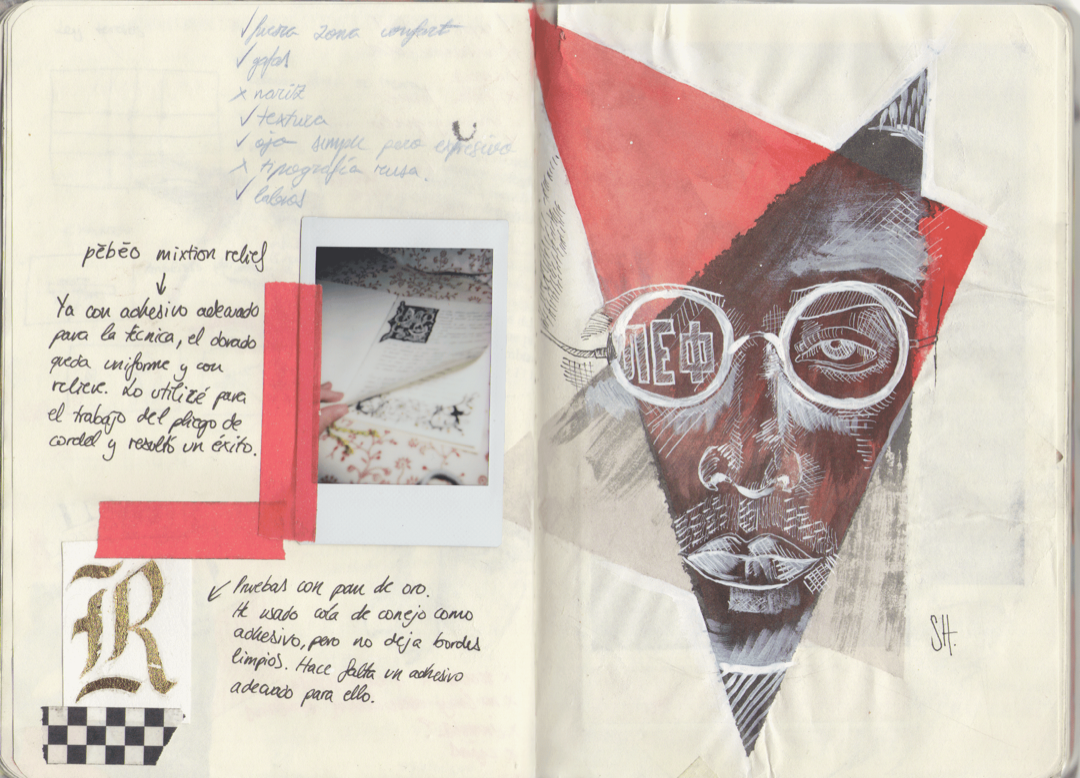 ✓ fuera zona confort
✓ gafas
x nariz
✓ textura
✓ ojo simple pero expresivo
x tipografía rusa.
✓ labios
pēbēo mixtion relief
↓
Ya con adhesivo adecuado
para la técnica, el dorado
queda uniforme y con
relieve. Lo utilizé para
el trabajo del pliego de
cordel y resultó un éxito.
R
↙ Pruebas con pan de oro.
He usado cola de conejo como
adhesivo, pero no deja bordes
limpios. Hace falta un adhesivo
adecuado para ello.
ЛЕФ
SH.